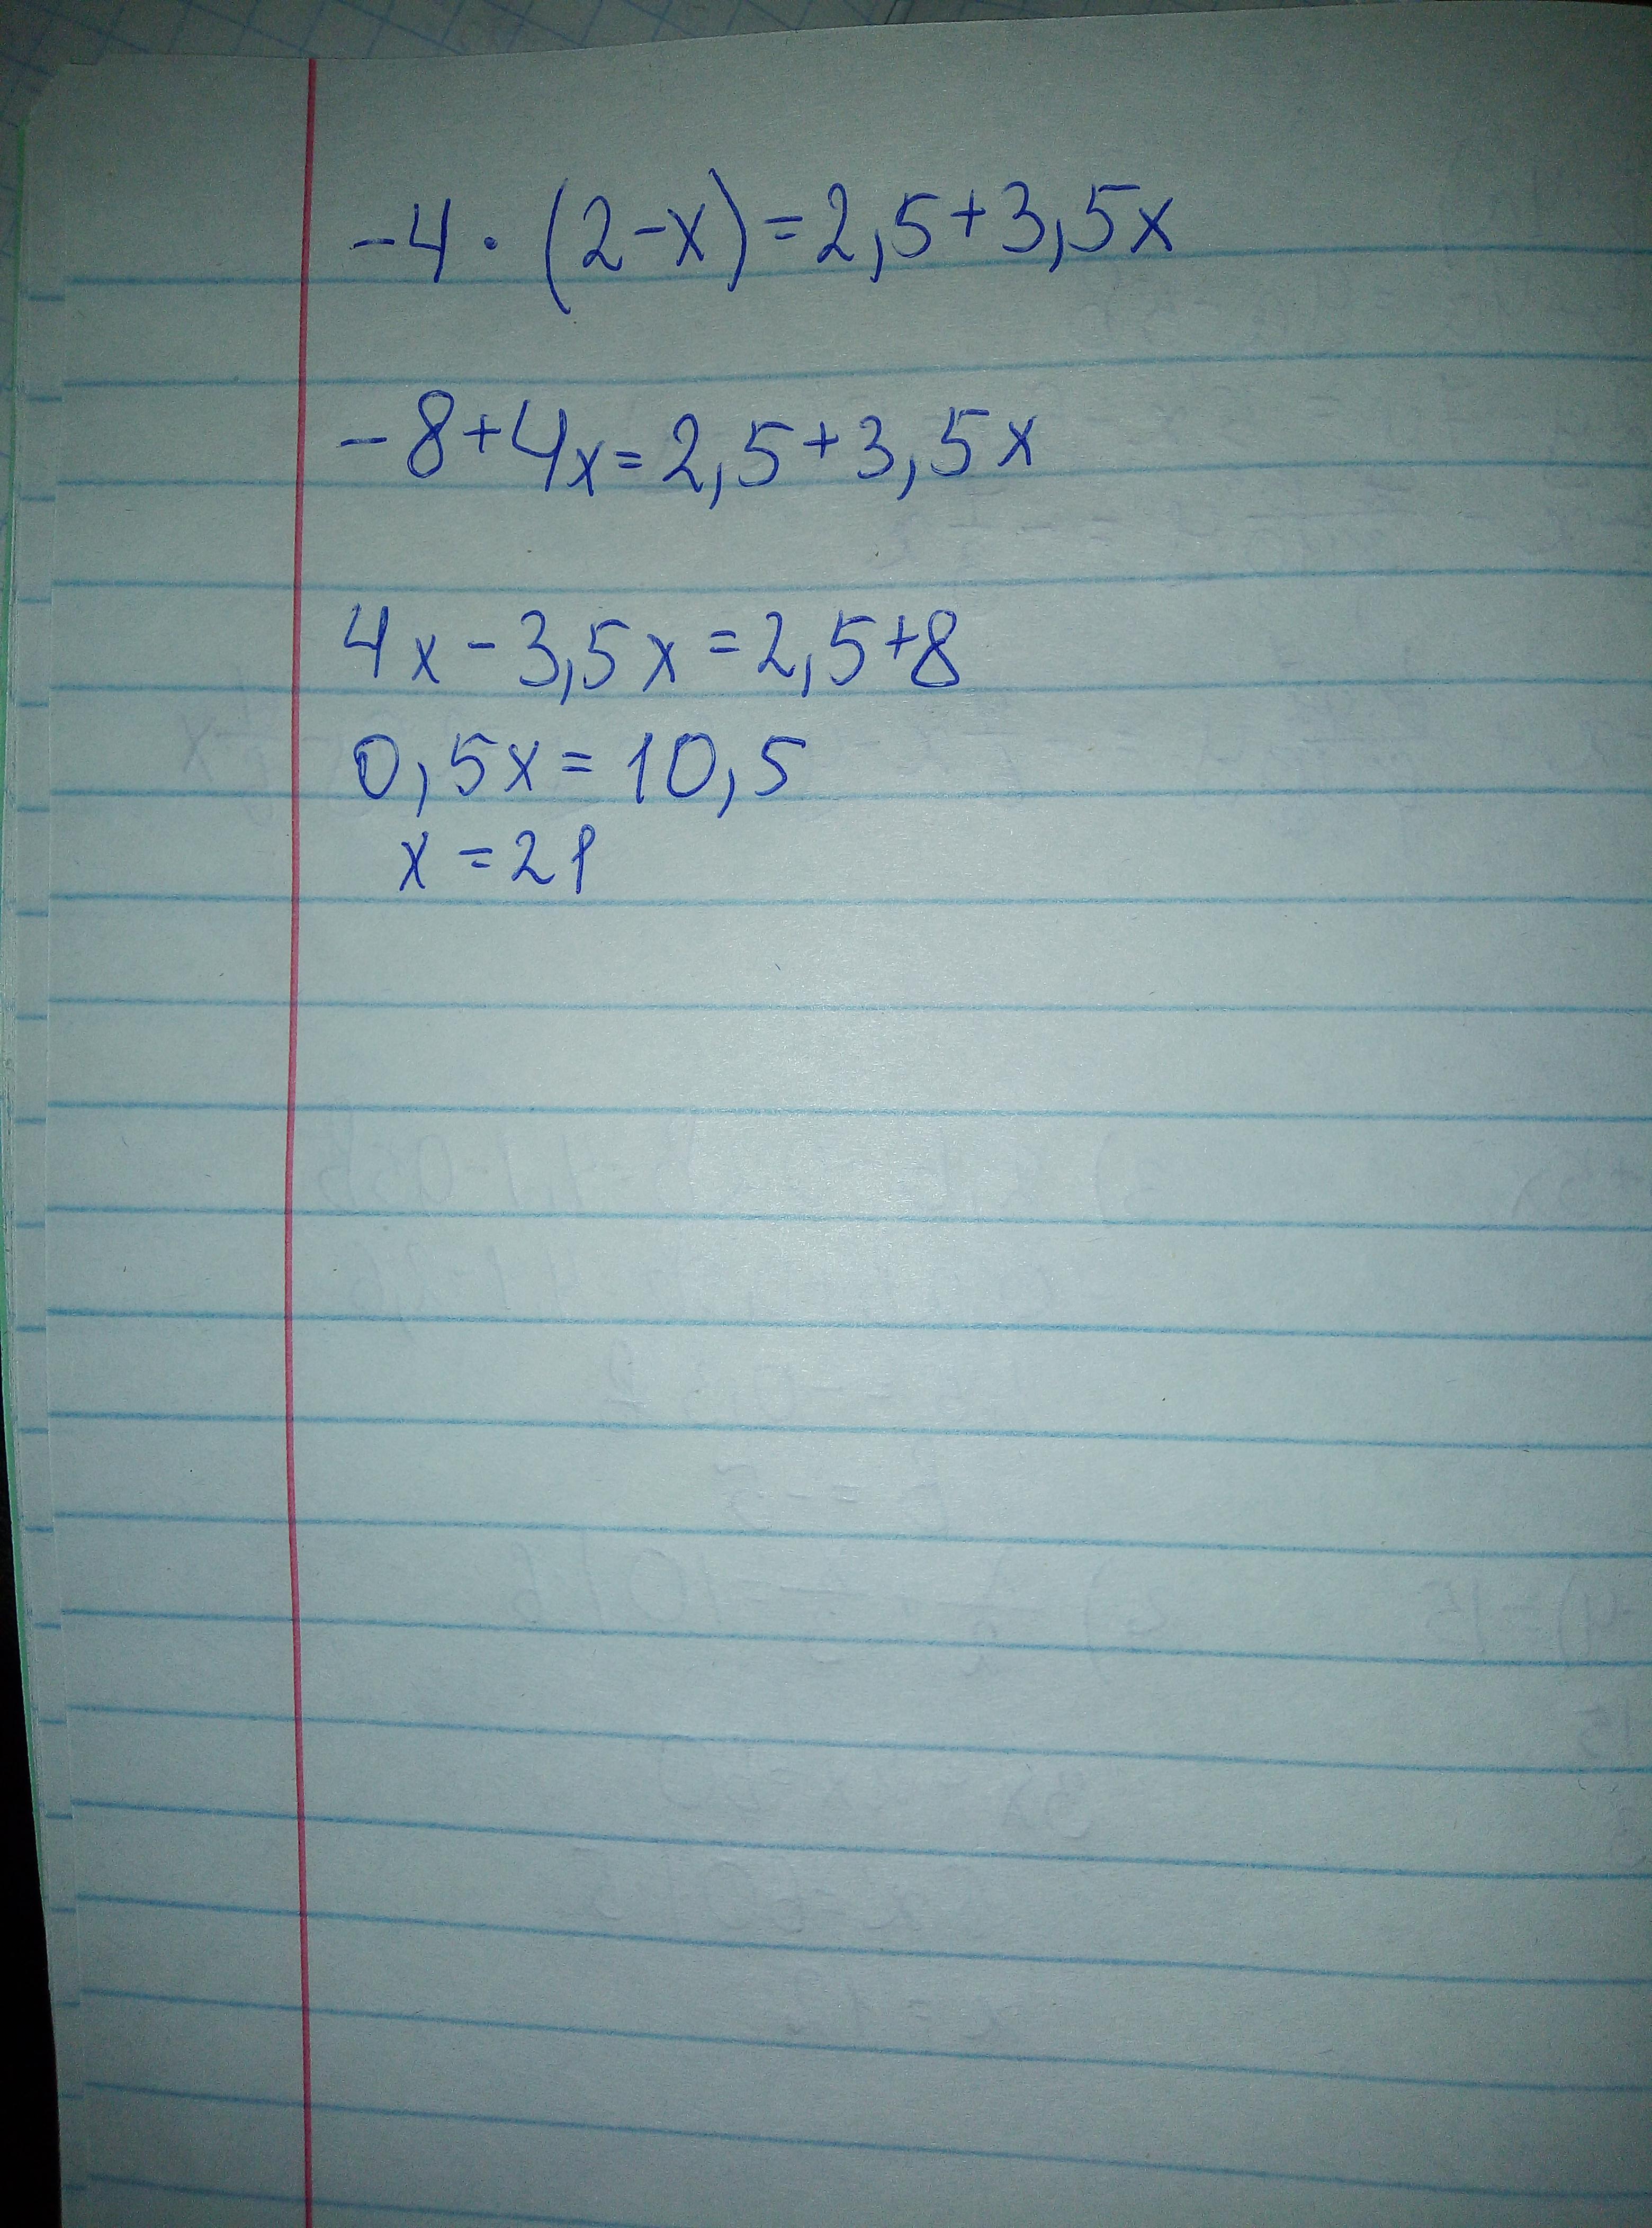 -4 · (2-x)=2,5+3,5x
-8+4x=2,5+3,5x
4x-3,5x=2,5+8
0,5x=10,5
x=21